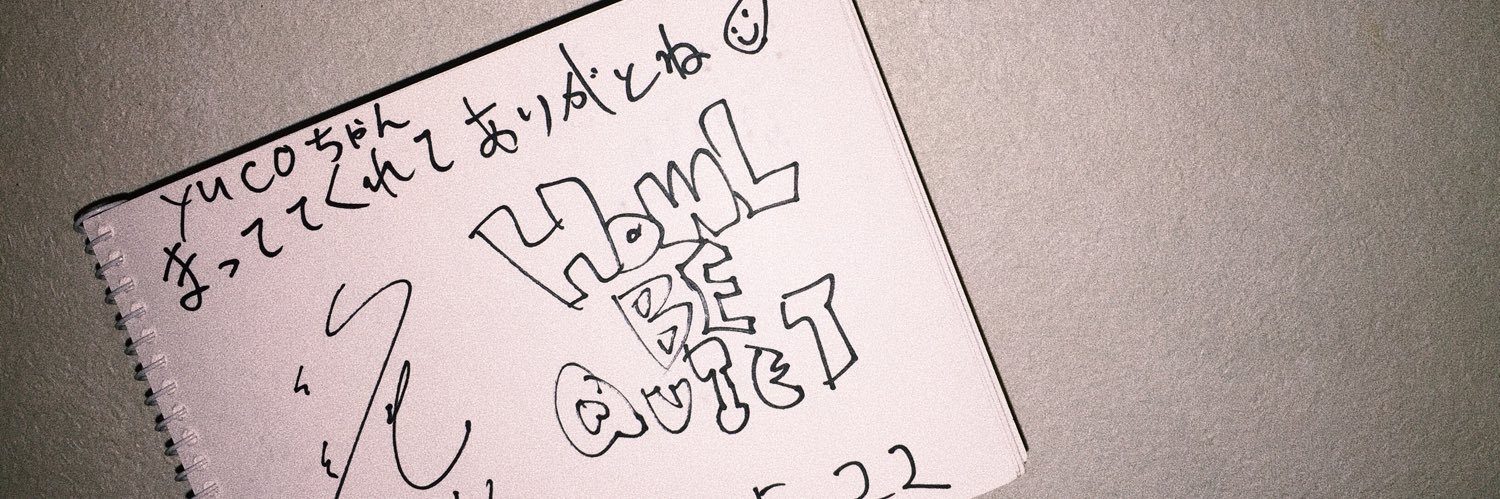 YUCOちゃん
まっててくれてありがとね
HOWL
BE
QUIET
22